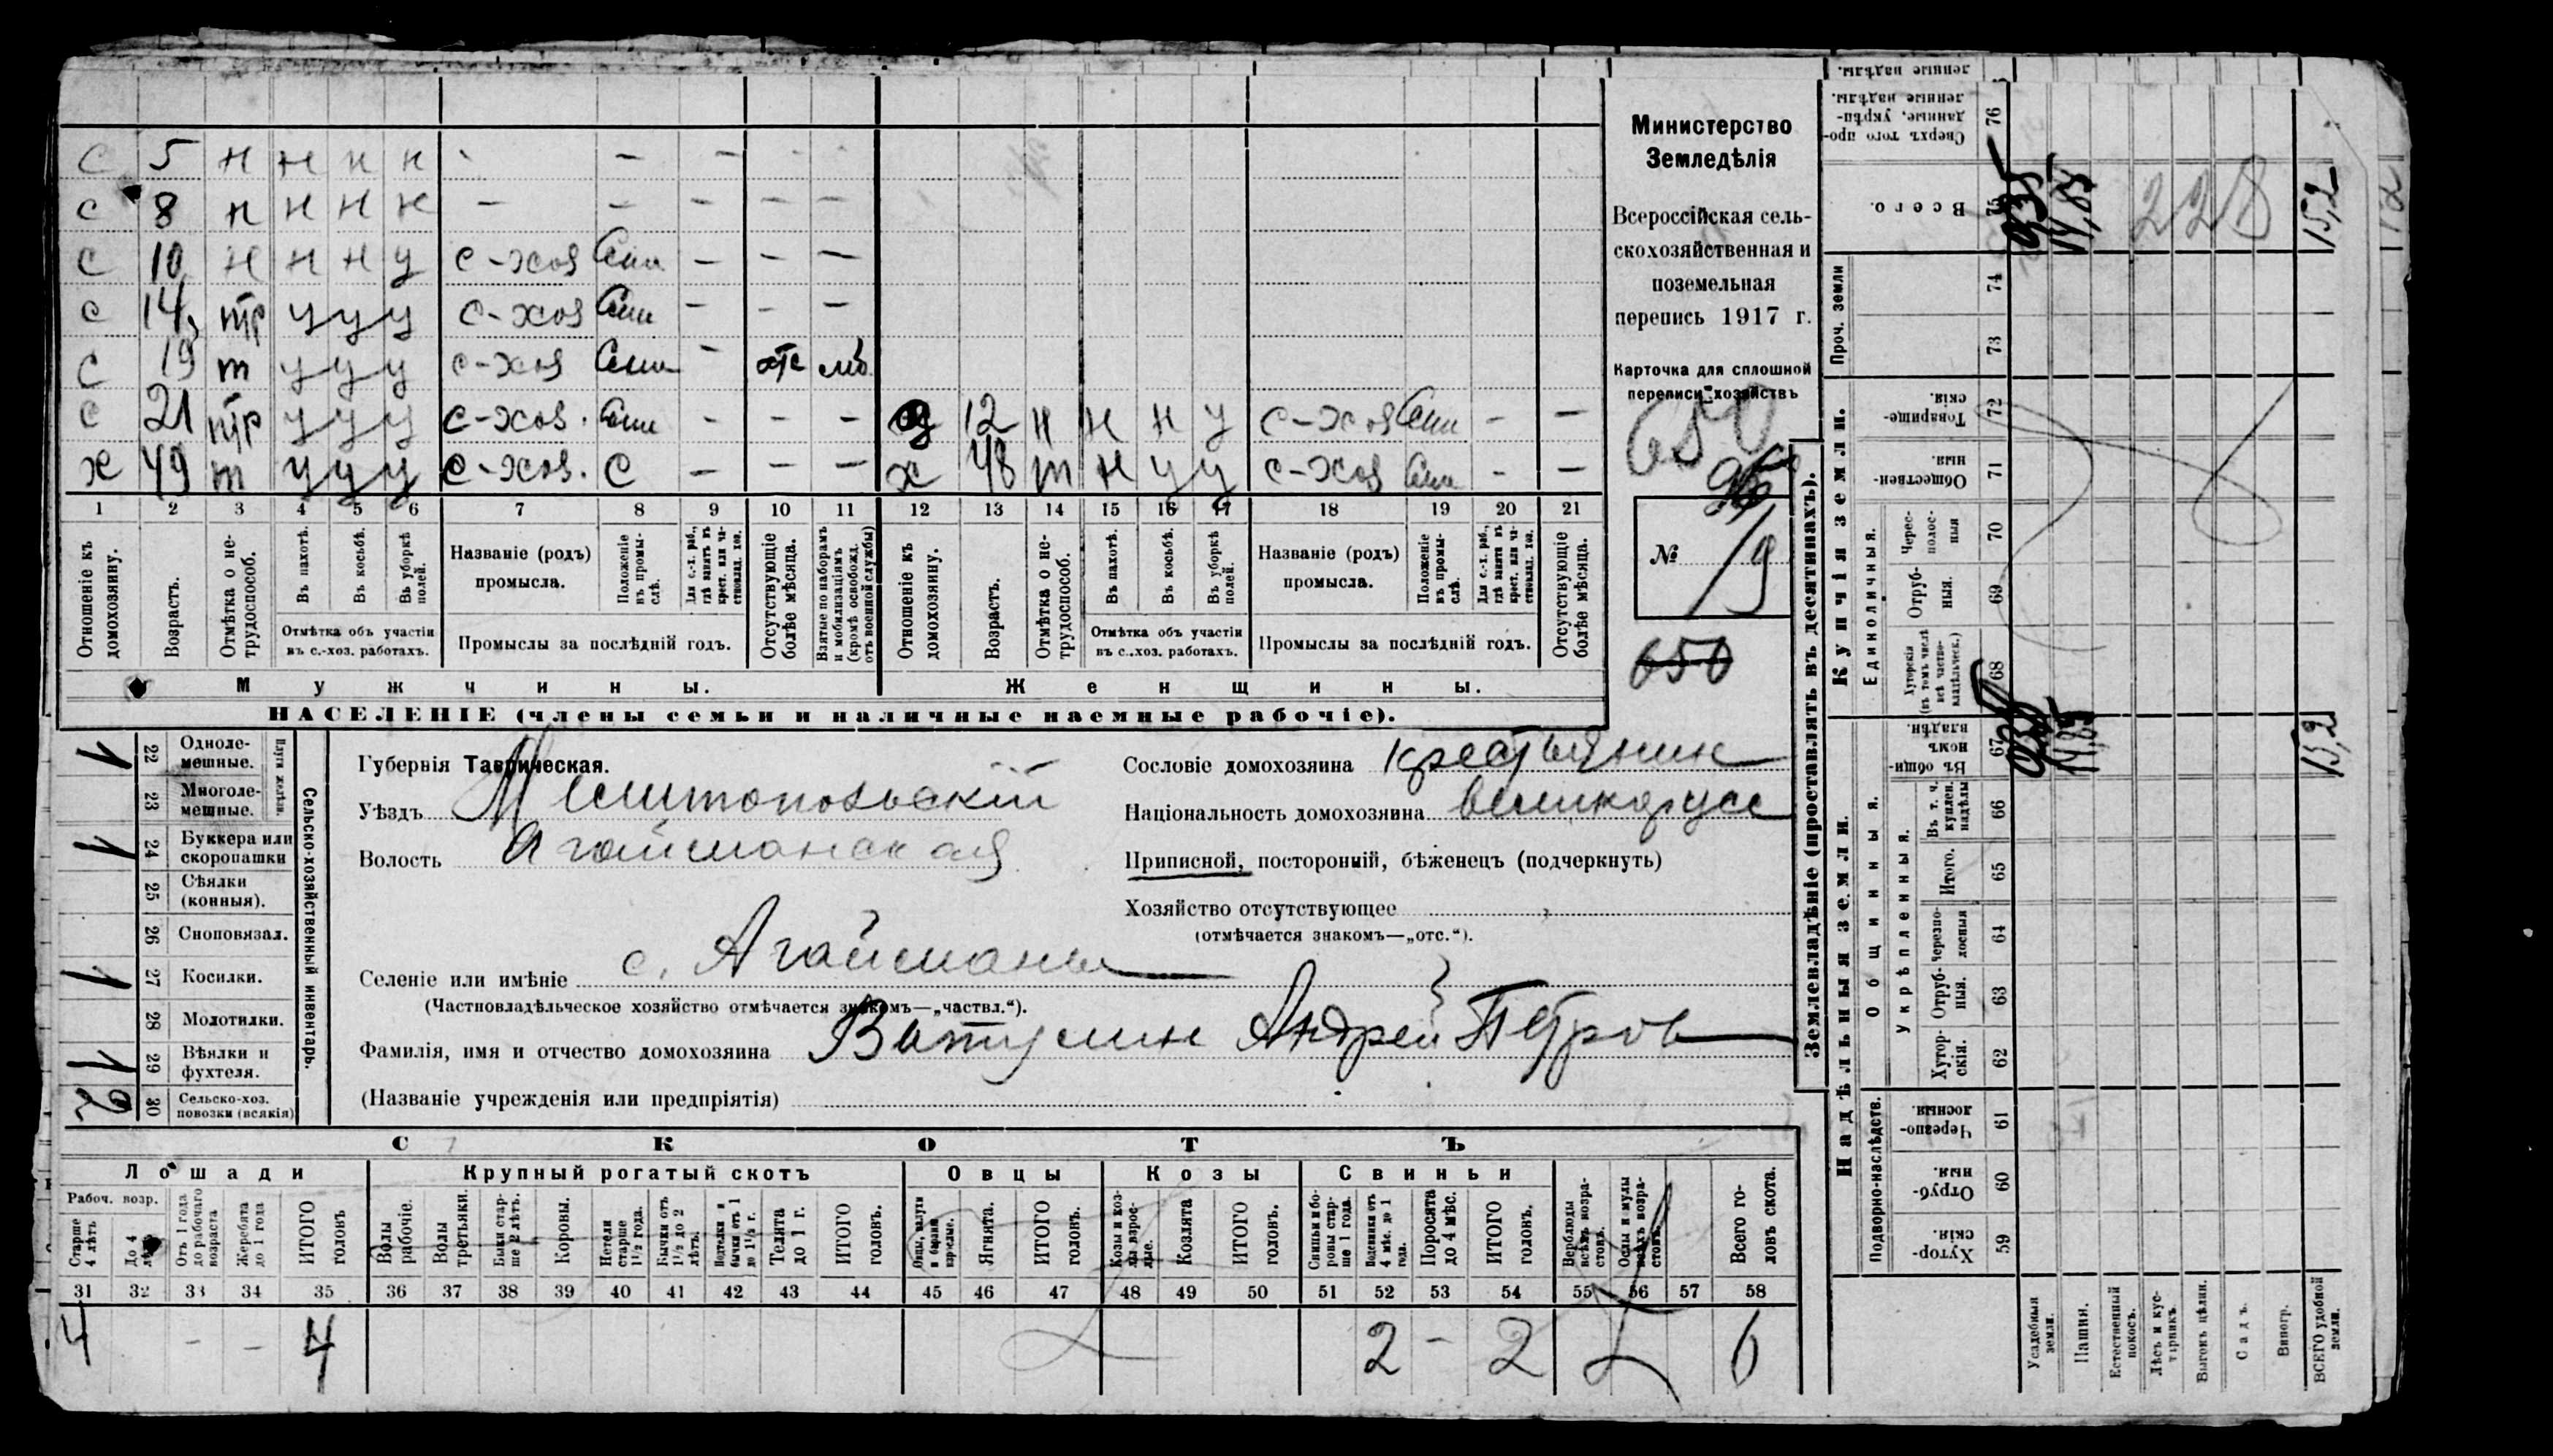 с 5 н н н н - - -
с 8 н н н н - - - - -
с 10 н н н у с-хоз Сем - - -
с 14 тр у у у с-хоз Сем - - -
с 19 т у у у с-хоз Сем - отс мб
с 21 тр у у у с-хоз. Сем - - - д 12 н н н у с-хоз Сем - -
х 49 т у у у с-хоз. С - - - х 48 т н у у с-хоз Сем - -
1 2 3 4 5 6 7 8 9 10 11 12 13 14 15 16 17 18 19 20 21
Отношеніе къ домохозяину.
Возрастъ.
Отмѣтка о не-трудоспособ.
Въ пахотѣ.
Въ косьбѣ.
Въ уборкѣ полей.
Отмѣтка объ участіи въ с.-хоз. работахъ.
Названіе (родъ) промысла.
Положеніе въ промы-слѣ.
Для с.-х. раб., гдѣ занятъ въ крест. или ча-стновлад. хоз.
Промыслы за послѣдній годъ.
Отсутствующіе болѣе мѣсяца.
Взятые по наборамъ и мобилизаціямъ (кромѣ освобожд. отъ военной службы)
Отношеніе къ домохозяину.
Возрастъ.
Отмѣтка о не-трудоспособ.
Въ пахотѣ.
Въ косьбѣ.
Въ уборкѣ полей.
Отмѣтка объ участіи въ с.-хоз. работахъ.
Названіе (родъ) промысла.
Положеніе въ промы-слѣ.
Для с.-х. раб., гдѣ занята въ крест. или ча-стновлад. хоз.
Промыслы за послѣдній годъ.
Отсутствующіе болѣе мѣсяца.
Мужчины.
Женщины.
НАСЕЛЕНІЕ (члены семьи и наличные наемные рабочіе).
Министерство
Земледѣлія
Всероссійская сель-
скохозяйственная и
поземельная
перепись 1917 г.
Карточка для сплошной
переписи хозяйствъ
650
96
№ 19
650
Плуги желѣзн.
1 22 Одноле-мешные.
23 Многоле-мешные.
1 24 Буккера или скоропашки
25 Сѣялки (конныя).
26 Сноповязал.
1 27 Косилки.
28 Молотилки.
1 29 Вѣялки и фухтеля.
2 30 Сельско-хоз. повозки (всякія)
Сельско-хозяйственный инвентарь.
Губернія Таврическая.
Уѣздъ Мелитопольскій
Волость Агайманская
Сословіе домохозяина крестьянин
Національность домохозяина великорусс
Приписной, посторонній, бѣженецъ (подчеркнуть)
Хозяйство отсутствующее
(отмѣчается знакомъ—„отс.“).
Селеніе или имѣніе с. Агайманы
(Частновладѣльческое хозяйство отмѣчается знакомъ—„частвл.“).
Фамилія, имя и отчество домохозяина Ватулин Андрей Петров
(Названіе учрежденія или предпріятія)
СКОТЪ
Лошади
Крупный рогатый скотъ
Овцы
Козы
Свиньи
Рабоч. возр.
Старше 4 лѣтъ
До 4 лѣтъ
Отъ 1 года до рабочаго возраста
Жеребята до 1 года
ИТОГО головъ
Волы рабочіе.
Волы третьяки.
Быки стар-ше 2 лѣтъ.
Коровы.
Нетели старше 1½ года.
Бычки отъ 1½ до 2 лѣтъ.
Подтелки и бычки отъ 1 до 1½ г.
Телята до 1 г.
ИТОГО головъ.
Овцы, валухи и бараны взрослые.
Ягнята.
ИТОГО головъ.
Козы и коз-лы взрос-лые.
Козлята
ИТОГО головъ.
Свиньи и бо-ровы стар-ше 1 года.
Подсвинки отъ 4 мѣс. до 1 года.
Поросята до 4 мѣс.
ИТОГО головъ.
Верблюды всѣхъ возра-стовъ.
Ослы и мулы всѣхъ возра-стовъ.
Всего го-ловъ скота.
31 32 33 34 35 36 37 38 39 40 41 42 43 44 45 46 47 48 49 50 51 52 53 54 55 56 57 58
4 - - 4 2 - 2 6
Землевладѣніе (проставлять въ десятинахъ).
Надѣльныя земли.
Купчія земли.
Проч. земли
Подворно-наслѣдств.
Общинныя.
Укрѣпленныя.
Единоличныя.
Сверхъ того про-данные, укрѣп-ленные надѣлы. 76
Всего. 75 0,35 14,85 15,2
228
74
73
Товарище-скія. 72
Обществен-ныя. 71
Черес-полос-ныя 70
Отруб-ныя. 69
Хуторскія (въ томъ числѣ всѣ частно-владѣльческ.) 68
Въ общи-номъ владѣн. 67 0,35 14,85 15,2
Въ т. ч. куплен. надѣлы 66
Итого. 65
Черезпо-лосныя 64
Отруб-ныя. 63
Хутор-скія. 62
Черезпо-лосныя. 61
Отруб-ныя. 60
Хутор-скія. 59
Усадебныя земли.
Пашня.
Естественный покосъ.
Лѣсъ и кус-тарникъ.
Выгонъ цѣлин.
Садъ.
Виногр.
ВСЕГО удобной земли.